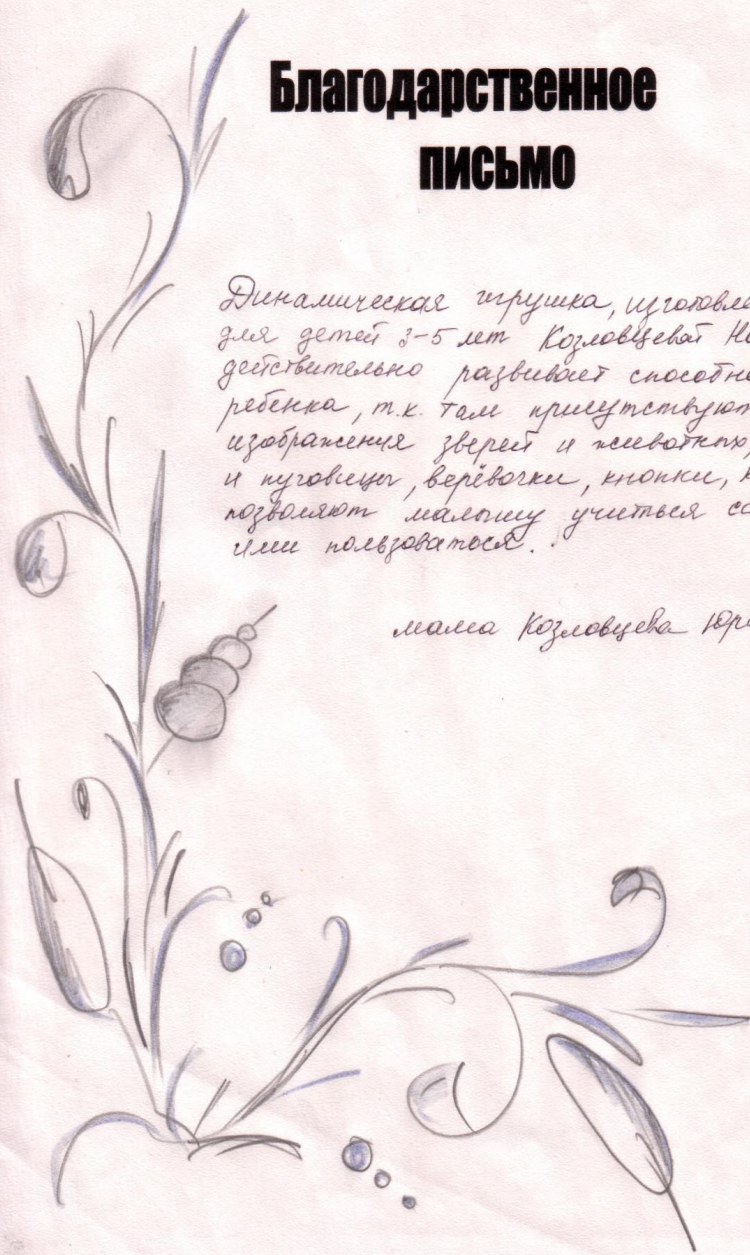 Благодарственное
письмо
Динамическая игрушка, изготовле
для детей 3-5 лет Козловцевой На
действительно развивает способно
ребенка, т.к. там присутствуют
изображения зверей и животных,
и пуговицы, верёвочки, кнопки, к
позволяют малышу учиться са
ими пользоваться.
мама Козловцева Юри